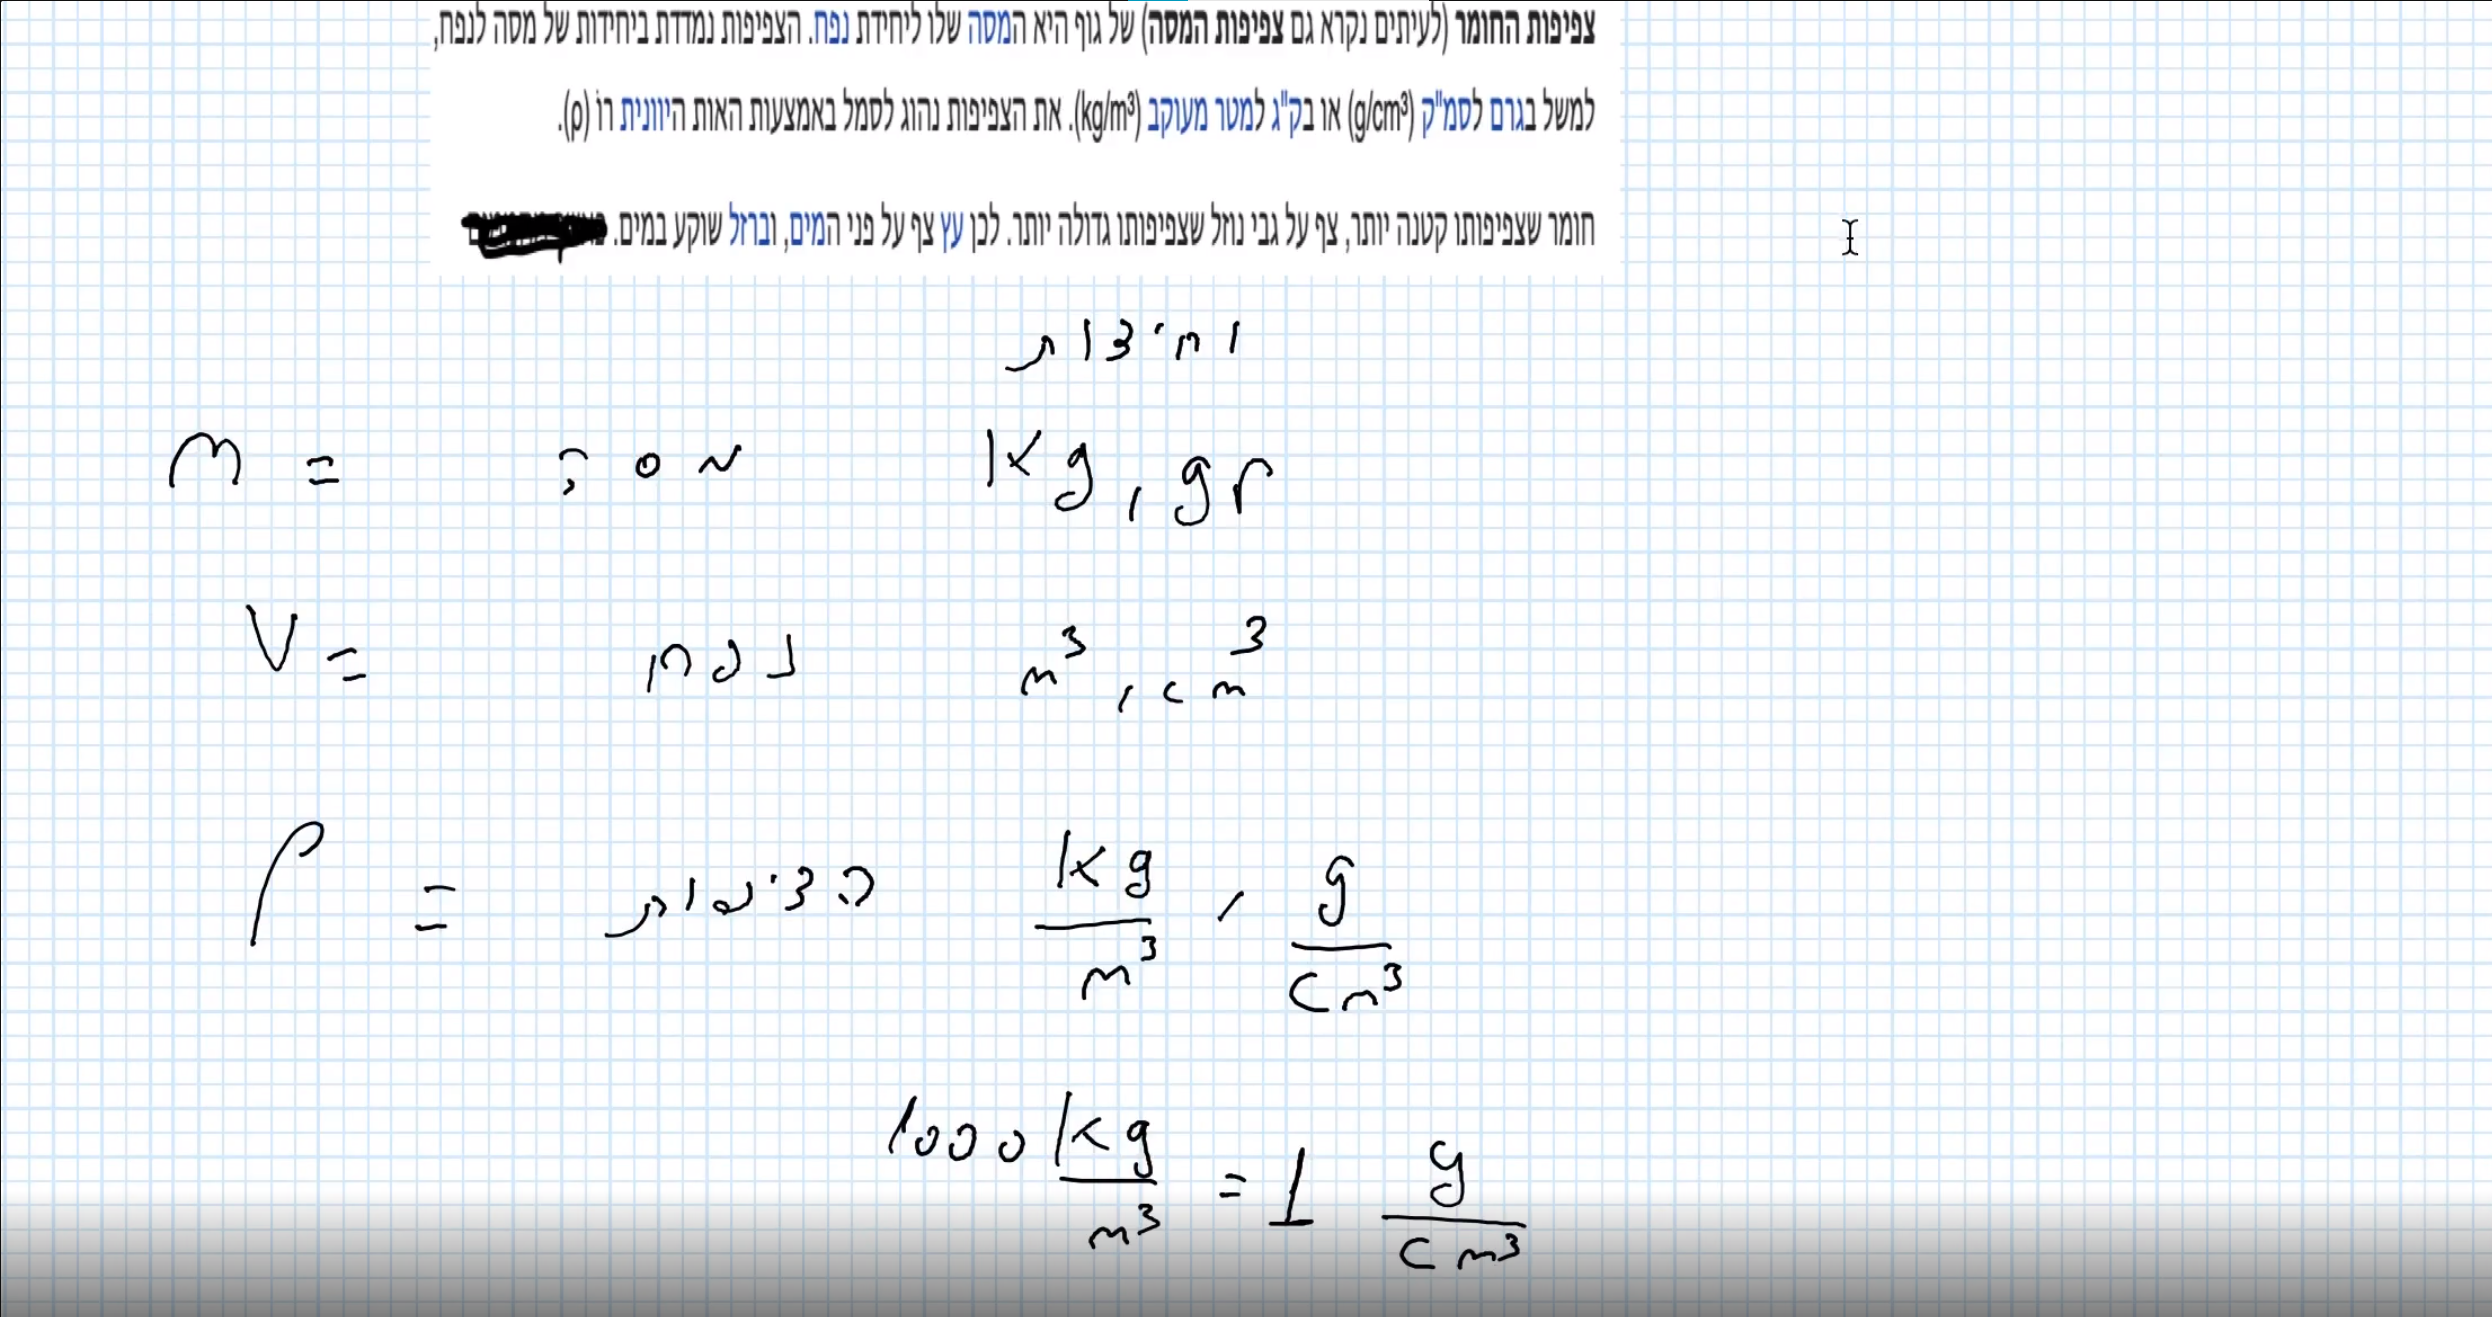 צפיפות החומר (לעיתים נקרא גם צפיפות המסה) של גוף היא המסה שלו ליחידת נפח. הצפיפות נמדדת ביחידות של מסה לנפח,
למשל בגרם לסמ"ק (g/cm³) או בק"ג למטר מעוקב (kg/m³). את הצפיפות נהוג לסמל באמצעות האות היוונית רוֹ (ρ).
חומר שצפיפותו קטנה יותר, צף על גבי נוזל שצפיפותו גדולה יותר. לכן עץ צף על פני המים, וברזל שוקע במים.
יחידות
m = מסה kg, gr
V = נפח m³, cm³
ρ = צפיפות kg/m³, g/cm³
1000 kg/m³ = 1 g/cm³